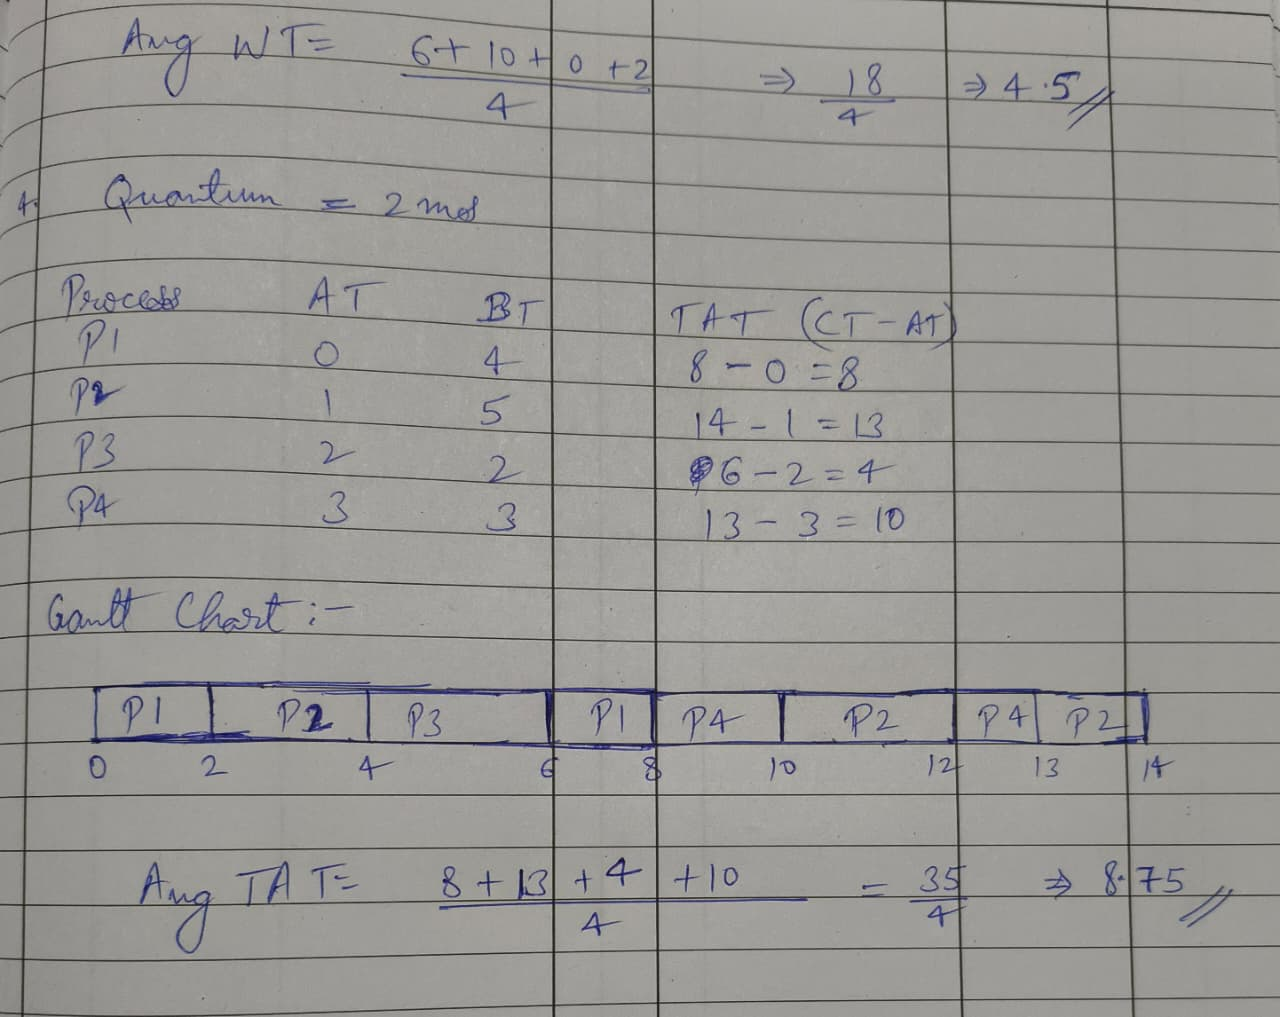 Avg WT = 6 + 10 + 0 + 2 / 4 ⇒ 18 / 4 ⇒ 4.5
4. Quantum = 2
Process AT BT TAT (CT - AT)
P1 0 4 8 - 0 = 8
P2 1 5 14 - 1 = 13
P3 2 2 6 - 2 = 4
P4 3 3 13 - 3 = 10
Gantt Chart :-
P1 P2 P3 P1 P4 P2 P4 P2
0 2 4 6 8 10 12 13 14
Avg TAT = 8 + 13 + 4 + 10 / 4 = 35 / 4 ⇒ 8.75